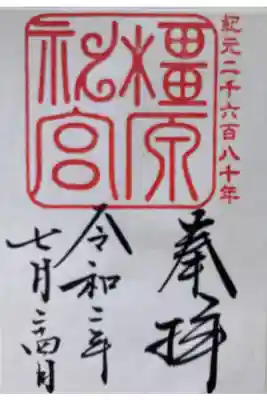 紀元二千六百八十年
橿原
神宮
奉拝
令和二年
七月二四日